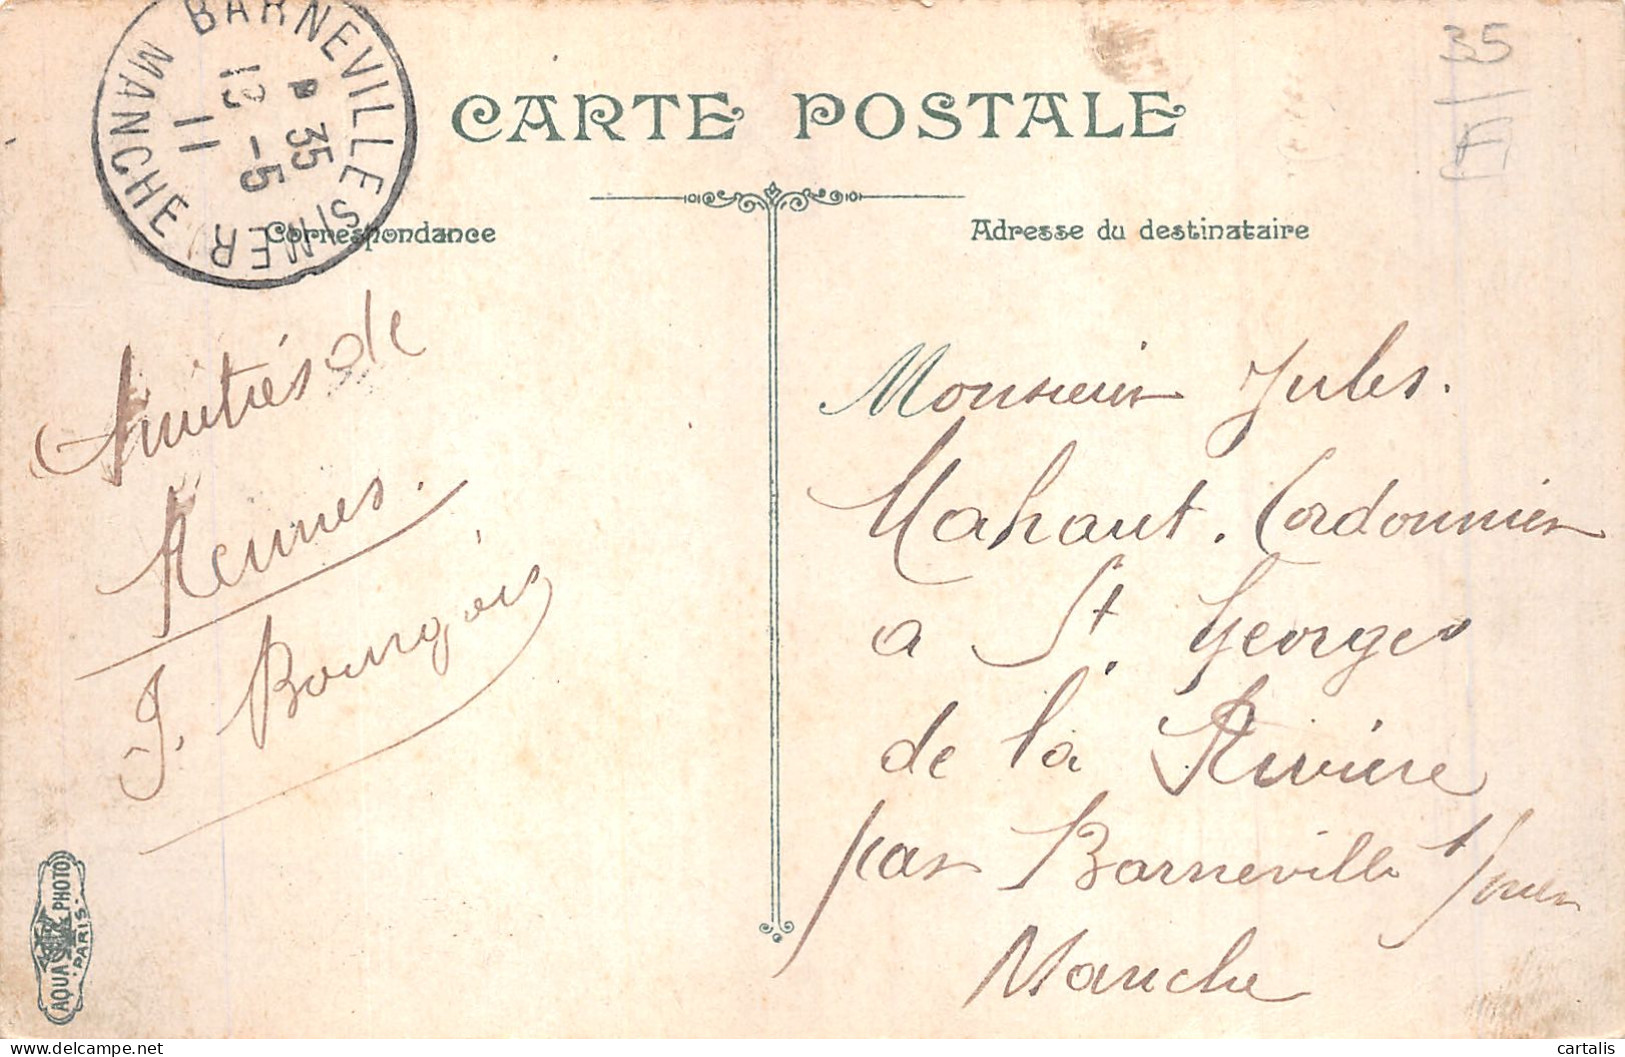 BARNEVILLE S/MER
MANCHE
35
13 -5
11
35
CARTE POSTALE
Correspondance
Adresse du destinataire
Amitiés de
Rennes.
J. Bourgois
Monsieur Jules.
Mahaut. Cordonnier
a St. Georges
de la Rivière
par Barneville s/mer
Manche
AQUA PHOTO
PARIS
cartalis
delcampe.net